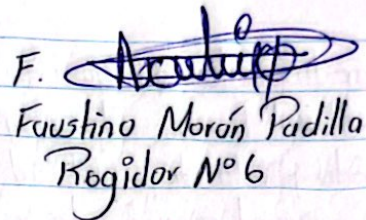 F.
Faustino Morón Padilla
Regidor Nº 6